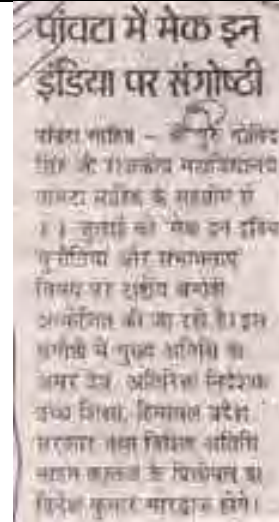 पांवटा में मेक इन
इंडिया पर संगोष्ठी
पांवटा साहिब – श्री गुरु गोविंद
सिंह जी राजकीय महाविद्यालय
पावटा साहिब के सहयोग से
11 जुलाई को मेक इन इंडिया
चुनौतिया और संभावनाएं
विषय पर राष्ट्रीय संगोष्ठी
आयोजित की जा रही है। इस
संगोष्ठी में मुख्य अतिथि डा.
अमर देव, अतिरिक्त निदेशक
उच्च शिक्षा, हिमाचल प्रदेश
सरकार तथा विशिष्ट अतिथि
नाहन कालेज के प्रिंसीपल डा.
दिनेश कुमार भारद्वाज होंगे।